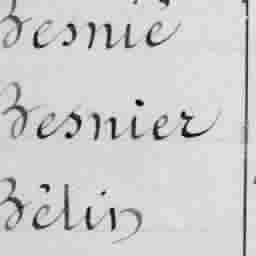 Besnié
Besnier
Bêlin